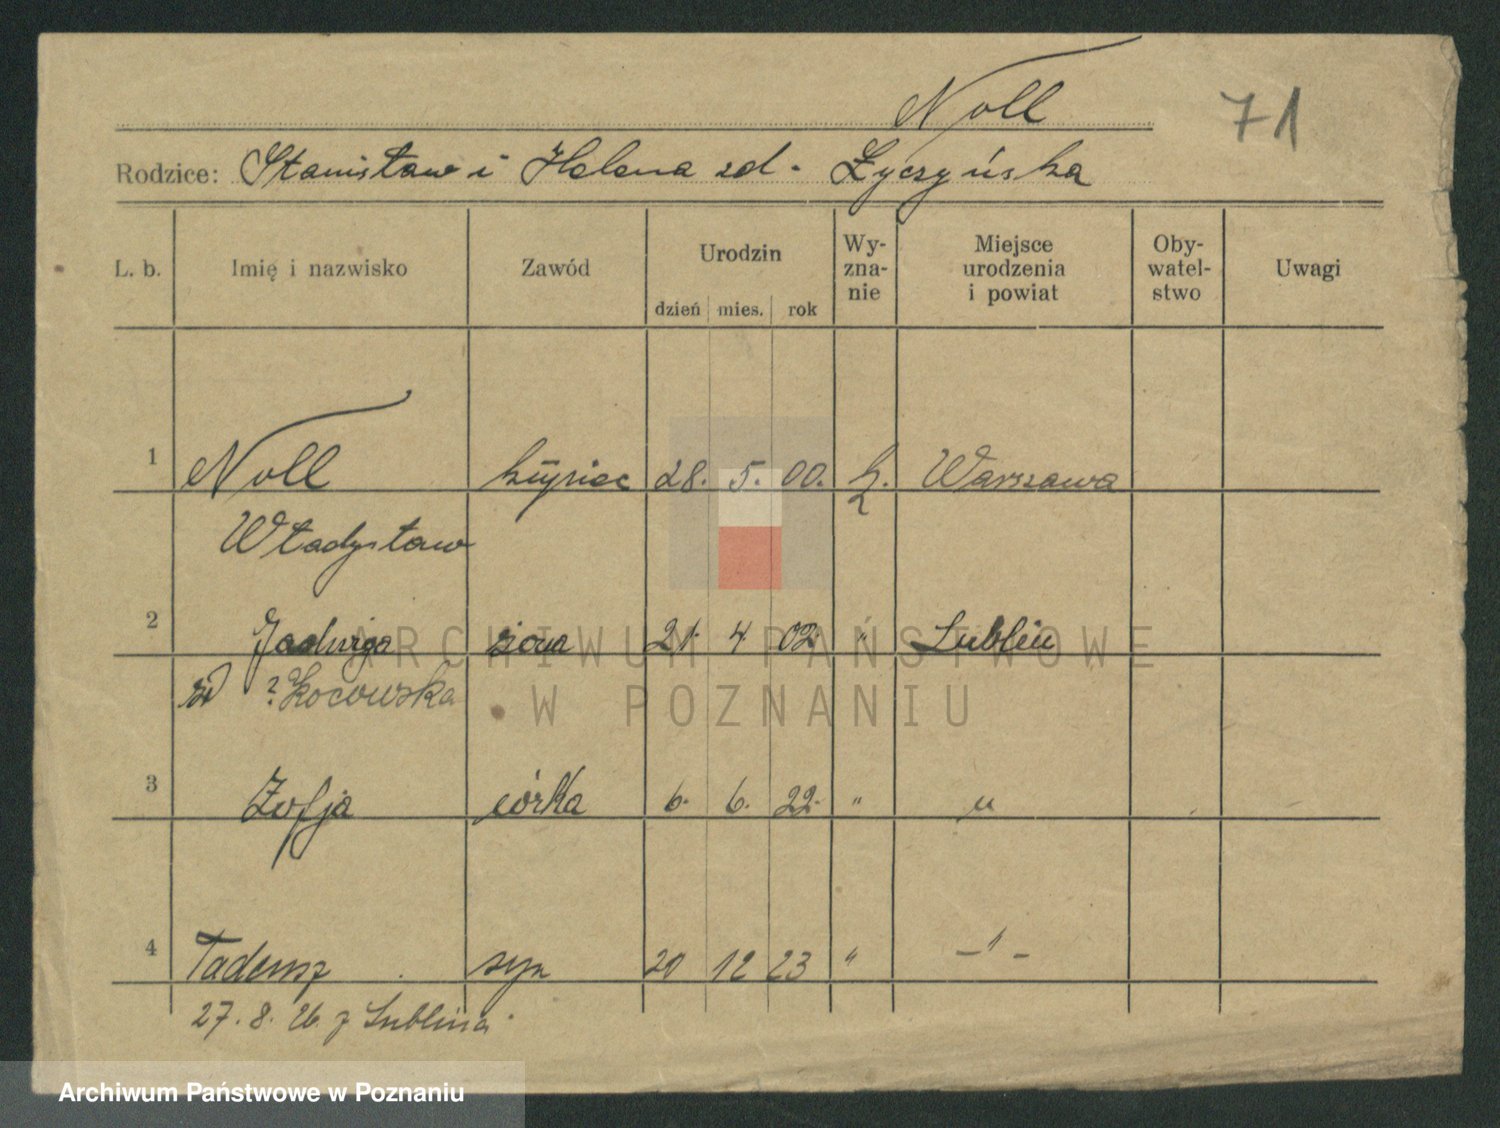 Noll
71
Rodzice: Stanisław i Helena zd. Łyczyńska
L. b. Imię i nazwisko Zawód Urodzin dzień mies. rok Wy-zna-nie Miejsce urodzenia i powiat Oby-watel-stwo Uwagi
1 Noll kupiec 28. 5. 00. k. Warszawa
Władysław
2 Jadwiga żona 21. 4. 02. " Lublin
zd ? Kocowska
3 Zofja córka 6. 6. 22. " "
4 Tadeusz syn 20 12 23 " -"-
27. 8. 26. z Lublina.
ARCHIWUM PAŃSTWOWE
W POZNANIU
Archiwum Państwowe w Poznaniu